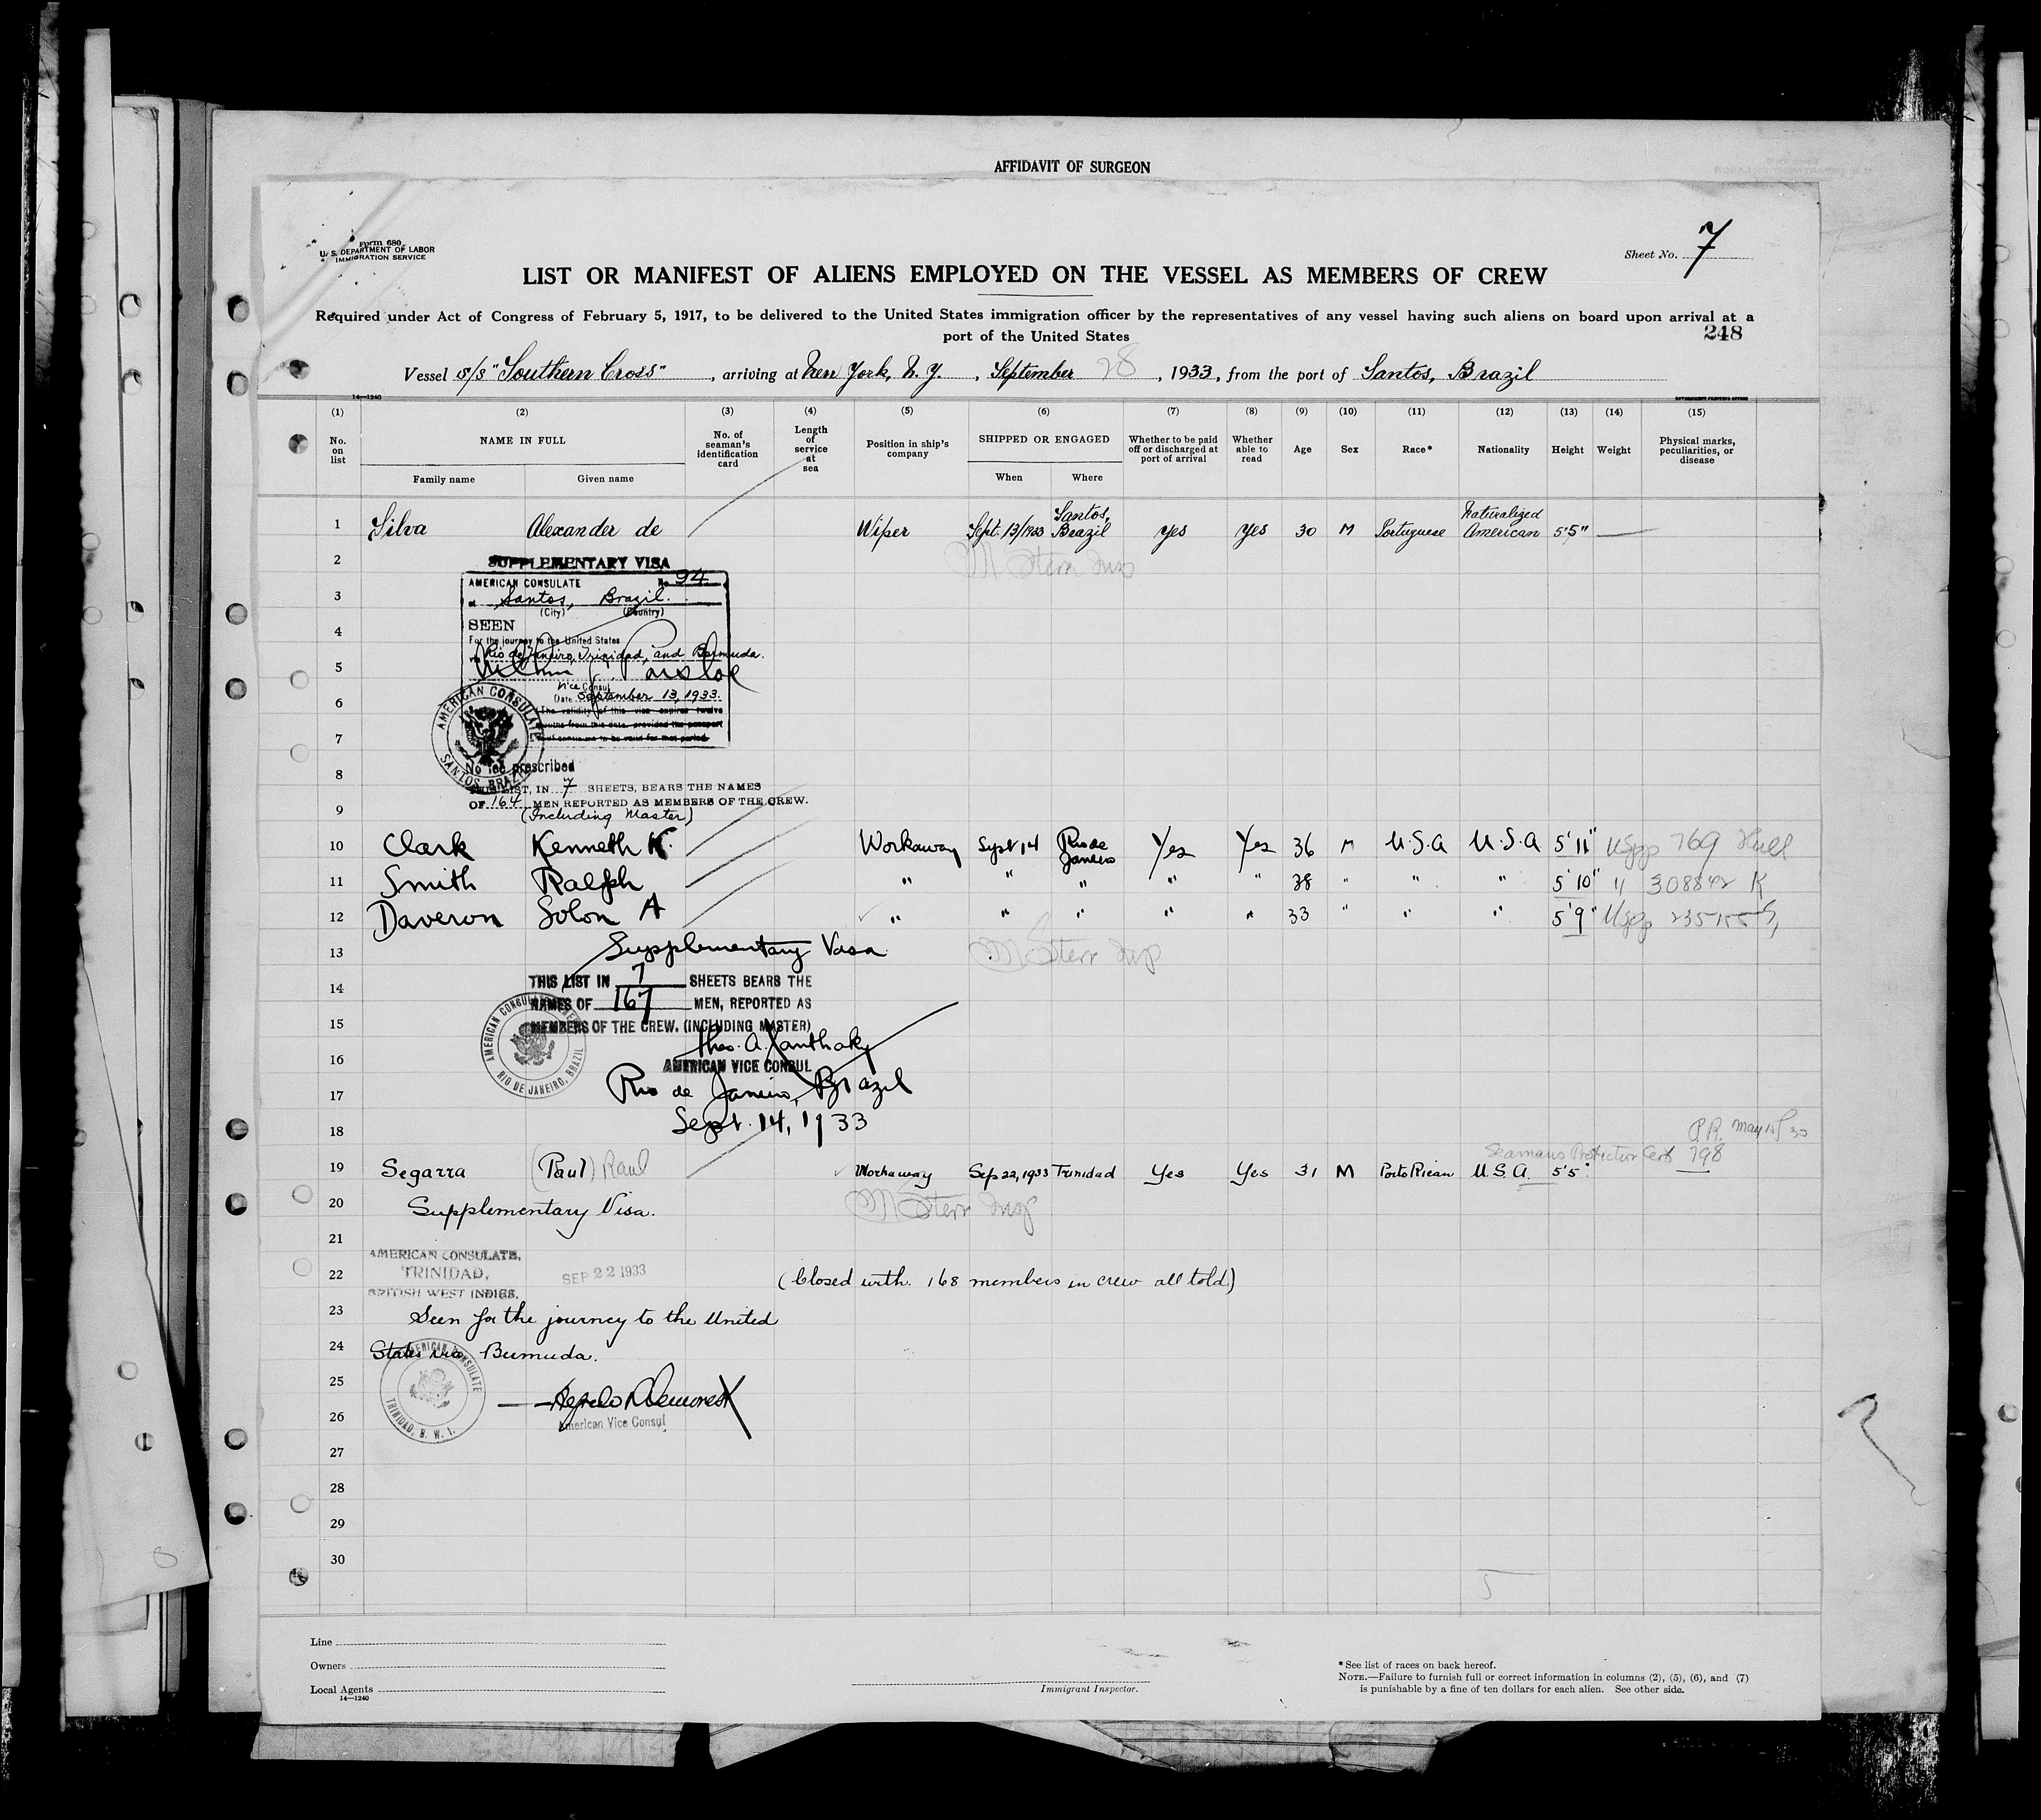 AFFIDAVIT OF SURGEON
Form 680
U. S. DEPARTMENT OF LABOR
IMMIGRATION SERVICE
Sheet No. 7
LIST OR MANIFEST OF ALIENS EMPLOYED ON THE VESSEL AS MEMBERS OF CREW
Required under Act of Congress of February 5, 1917, to be delivered to the United States immigration officer by the representatives of any vessel having such aliens on board upon arrival at a
port of the United States
248
Vessel S/S "Southern Cross", arriving at New York, N.Y., September 28, 1933, from the port of Santos, Brazil
14—1240
(1) (2) (3) (4) (5) (6) (7) (8) (9) (10) (11) (12) (13) (14) (15)
No. on list
NAME IN FULL
Family name
Given name
No. of seaman's identification card
Length of service at sea
Position in ship's company
SHIPPED OR ENGAGED
When
Where
Whether to be paid off or discharged at port of arrival
Whether able to read
Age
Sex
Race*
Nationality
Height
Weight
Physical marks, peculiarities, or disease
1 Silva Alexander de Wiper Sept. 13/1933 Santos, Brazil yes yes 30 M Portuguese Naturalized American 5'5" —
2
SUPPLEMENTARY VISA
AMERICAN CONSULATE No. 94
3
at Santos, Brazil.
(City) (Country)
SEEN
4
For the journey to the United States
via Rio de Janeiro, Trinidad, and Bermuda.
5
Vice Consul
Date September 13, 1933.
6
The validity of this visa expires twelve
months from this date, provided the passport
7
continues to be valid for that period.
AMERICAN CONSULATE SANTOS, BRAZIL
No fee prescribed
8
THIS LIST, IN 7 SHEETS, BEARS THE NAMES
OF 164 MEN REPORTED AS MEMBERS OF THE CREW.
9
(Including Master)
10 Clark Kenneth K. Workaway Sept 14 Rio de Janeiro Yes Yes 36 M U.S.A U.S.A 5'11" USpp 769
11 Smith Ralph " " " " " 38 " " " 5'10" " 308842 K
12 Daveron Solon A " " " " " 33 " " " 5'9" USpp
13
Supplementary Vasa
M Stern Insp
14
THIS LIST IN 7 SHEETS BEARS THE
NAMES OF 167 MEN, REPORTED AS
15
MEMBERS OF THE CREW. (INCLUDING MASTER)
Theo. A. Xanthaky
16
AMERICAN VICE CONSUL
AMERICAN CONSULATE RIO DE JANEIRO, BRAZIL
17
Rio de Janeiro, Brazil
18
Sept. 14, 1933
P.R. May
Seamans Protection Cert 798
19 Segarra (Paul) Raul Workaway Sep 22, 1933 Trinidad Yes Yes 31 M Porto Rican U.S.A. 5'5"
20
Supplementary Visa.
M Stern Insp
21
AMERICAN CONSULATE,
22
TRINIDAD, SEP 22 1933
(Closed with 168 members in crew all told)
BRITISH WEST INDIES.
23
Seen for the journey to the United
24
States via Bermuda.
AMERICAN CONSULATE TRINIDAD, B. W. I.
25
26
American Vice Consul
27
28
29
30
Line
Owners
Local Agents
14—1240
Immigrant Inspector.
* See list of races on back hereof.
NOTE.—Failure to furnish full or correct information in columns (2), (5), (6), and (7)
is punishable by a fine of ten dollars for each alien. See other side.